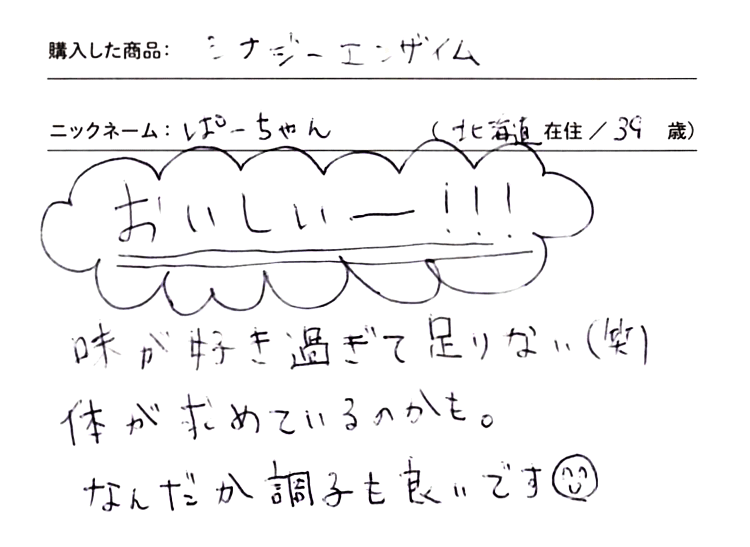 購入した商品: シナジーエンザイム
ニックネーム: ぱーちゃん (北海道在住/39 歳)
おいしいー!!!
味が好き過ぎて足りない(笑)
体が求めているのかも。
なんだか調子も良いです